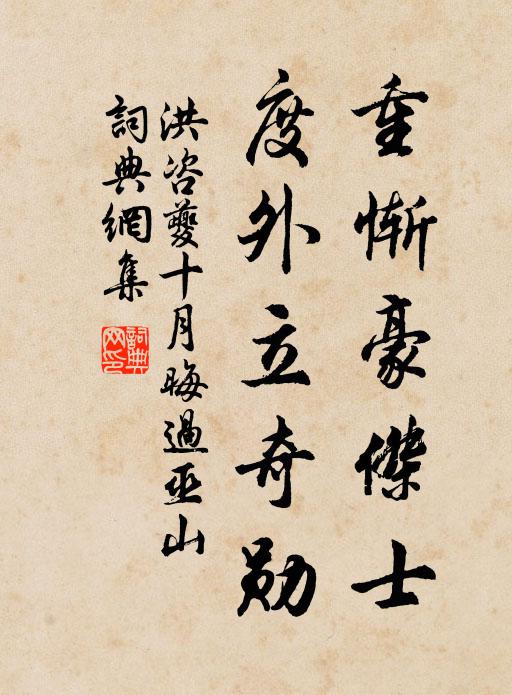 重慚豪傑士
度外立奇勛
洪咨夔十月晦過巫山
詞典網集
詞典網印